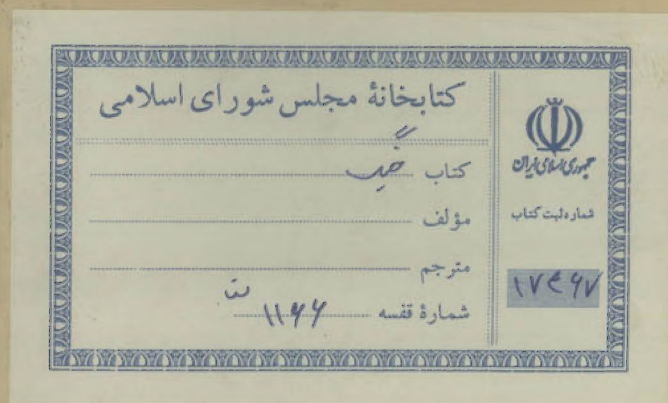 کتابخانهٔ مجلس شورای اسلامی
کتاب
مؤلف
مترجم
شمارهٔ قفسه ۱۱۶۶
جمهوری اسلامی ایران
شماره ثبت کتاب
۱۷۴۶۷